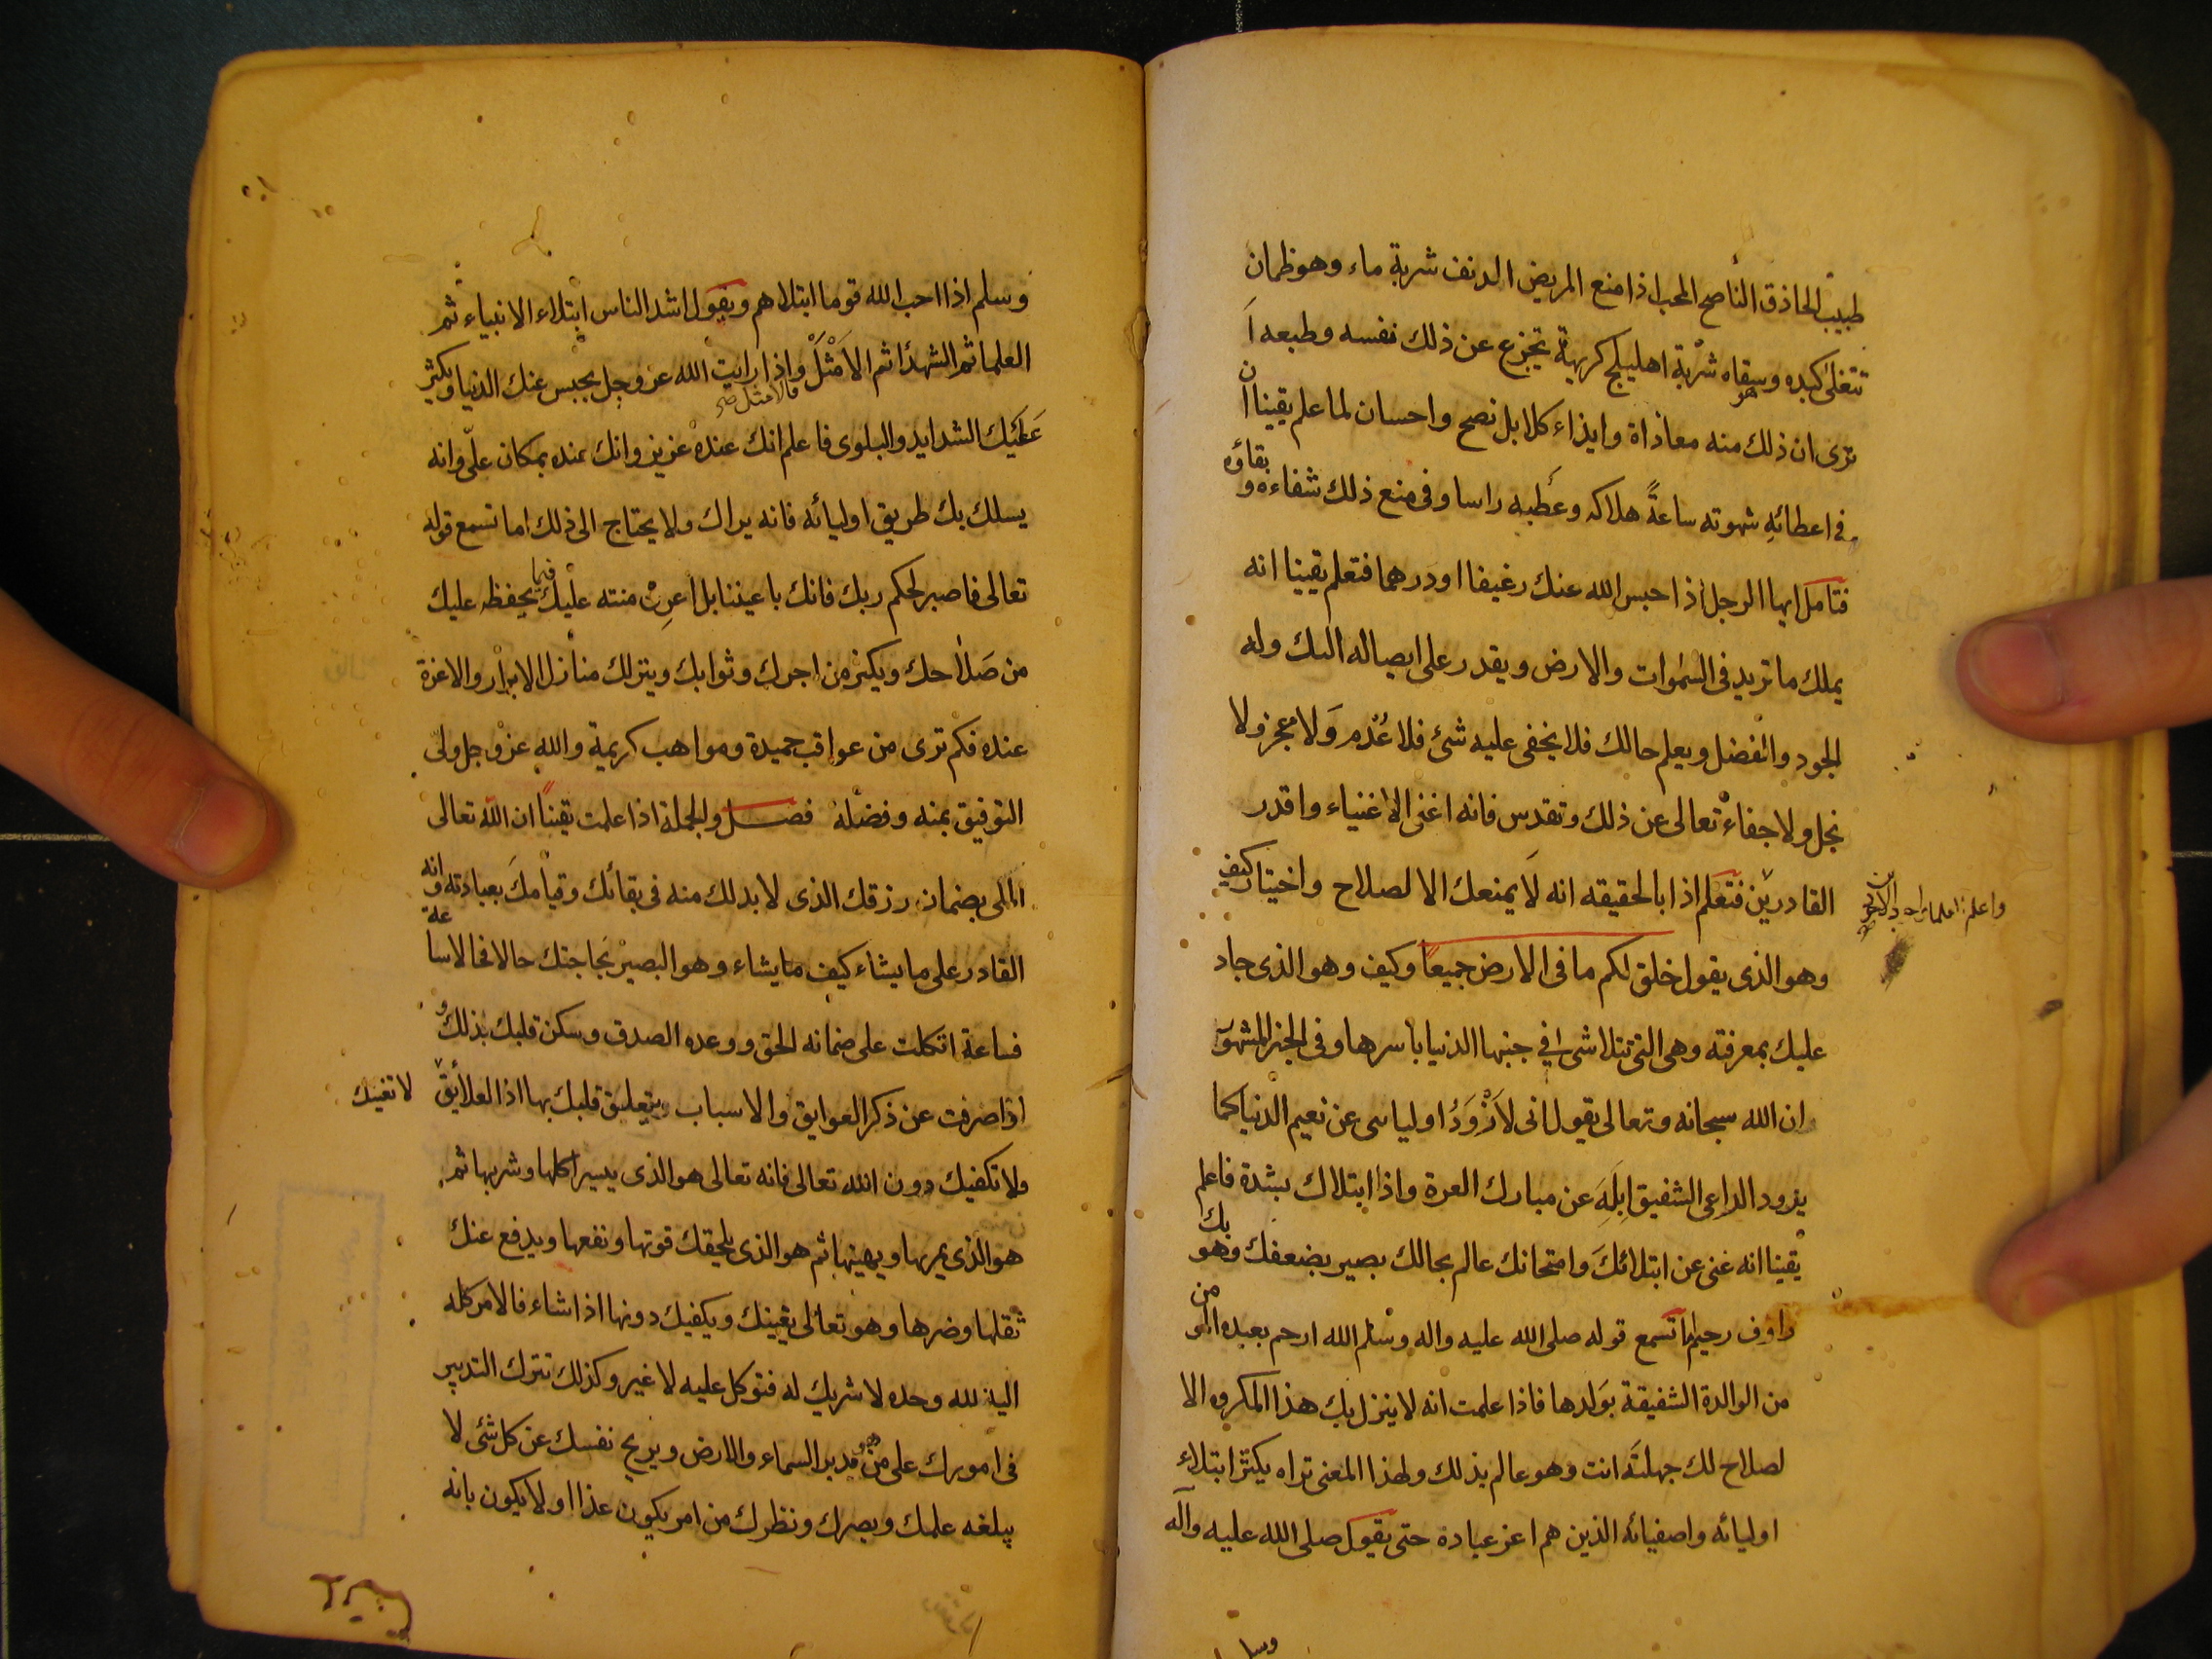 طبيب الحاذق الناصح المحب اذا منع المريض الدنف شربة ماء وهو ظمان
تتغلى كبده وسقاه شربة اهليلج كريهة تجزع عن ذلك نفسه وطبعه ا
ترى ان ذلك منه معاداة وايذاء كلا بل نصح واحسان لما علم يقينا ان
في اعطائه شهوته ساعة هلاكه وعطبه راسا وفى منع ذلك شفاءه وبقاؤه
فتامل ايها الرجل اذا حبس الله عنك رغيفا او درهما فتعلم يقينا انه
يملك ما تريد فى السموات والارض ويقدر على ايصاله اليك وله
الجود والفضل ويعلم حالك فلا يخفى عليه شئ فلا عُدْم وَلا معجز ولا
بخل ولا جفاء تعالى عن ذلك وتقدس فانه اغنى الاغنياء واقدر
القادرين فتعلم اذا بالحقيقه انه لَا يمنعك الا لصلاح واختيار كيف
وهو الذى يقول خلق لكم ما فى الارض جميعا وكيف وهو الذى جاد
عليك بمعرفته وهى التى تتلاشى في جنبها الدنيا باسرها وفى الخبر المشهور
ان الله سبحانه وتعالى يقول انى لاذود اوليائى عن نعيم الدنيا كما
يزود الراعى الشفيق ابله عن مبارك العرة واذا ابتلاك بشدة فاعلم
يقينا انه غنى عن ابتلائك وامتحانك عالم بحالك بصير بضعفك وهو بك
راوف رحيم اما تسمع قوله صلى الله عليه واله وسلم الله ارحم بعبده المومن
من الوالدة الشفيقة بولدها فاذا علمت انه لا ينزل بك هذا المكروه الا
لصلاح لك جهلته انت وهو عالم بذلك ولهذا المعنى تراه يكثر ابتلاء
اوليائه واصفيائه الذين هم اعز عباده حتى يقول صلى الله عليه وآله
وسلم
وسلم اذا احب الله قوما ابتلاهم ويقول اشد الناس ابتلاء الانبياء ثم
العلما ثم الشهدا ثم الامثل فالامثل صح واذا رايت الله عز وجل يحبس عنك الدنيا ويكثر
عَلَيْك الشدايد والبلوى فاعلم انك عنده عزيز وانك عنده بمكان علىّ وانه
يسلك بك طريق اوليائه فانه يراك ولا يحتاج الى ذلك اما تسمع قوله
تعالى فاصبر لحكم ربك فانك باعيننا بل اعرف منته عليك فيما يحفظ عليك
من صَلاحك ويكثر من اجرك وثوابك وينزلك منازل الابرار والاعزة
عنده فكم ترى من عواقب حميدة ومواهب كريمة والله عز وجل ولىّ
التوفيق بمنه وفضله فصل والجملة اذا علمت يقينا ان الله تعالى
الملى بضمان رزقك الذى لا بد لك منه فى بقائك وقيامك بعبادته وانه
القادر على ما يشاء كيف ما يشاء وهو البصير بحاجتك حالا فحالا ساعة
فساعة اتكلت على ضمانه الحق ووعده الصدق وسكن قلبك بذلك و
اذا صرفت عن ذكر العوايق والاسباب وتعليق قلبك بها اذ العلايق لا تغنيك
ولا تكفيك دون الله تعالى فانه تعالى هو الذى يسير اكلها وشربها ثم
هو الذى يمريها ويهنيها ثم هو الذى يلحقك قوتها ونفعها ويدفع عنك
ثقلها وضرها وهو تعالى يغينك ويكفيك دونها اذا شاء فالامر كله
اليه لله وحده لا شريك له فتوكل عليه لا غير وكذلك تترك التدبير
فى امورك على من هو مدبر السماء والارض ويريح نفسك عن كل شئ لا
يبلغه علمك وبصرك ونظرك من امر يكون غدا او لا يكون بانه